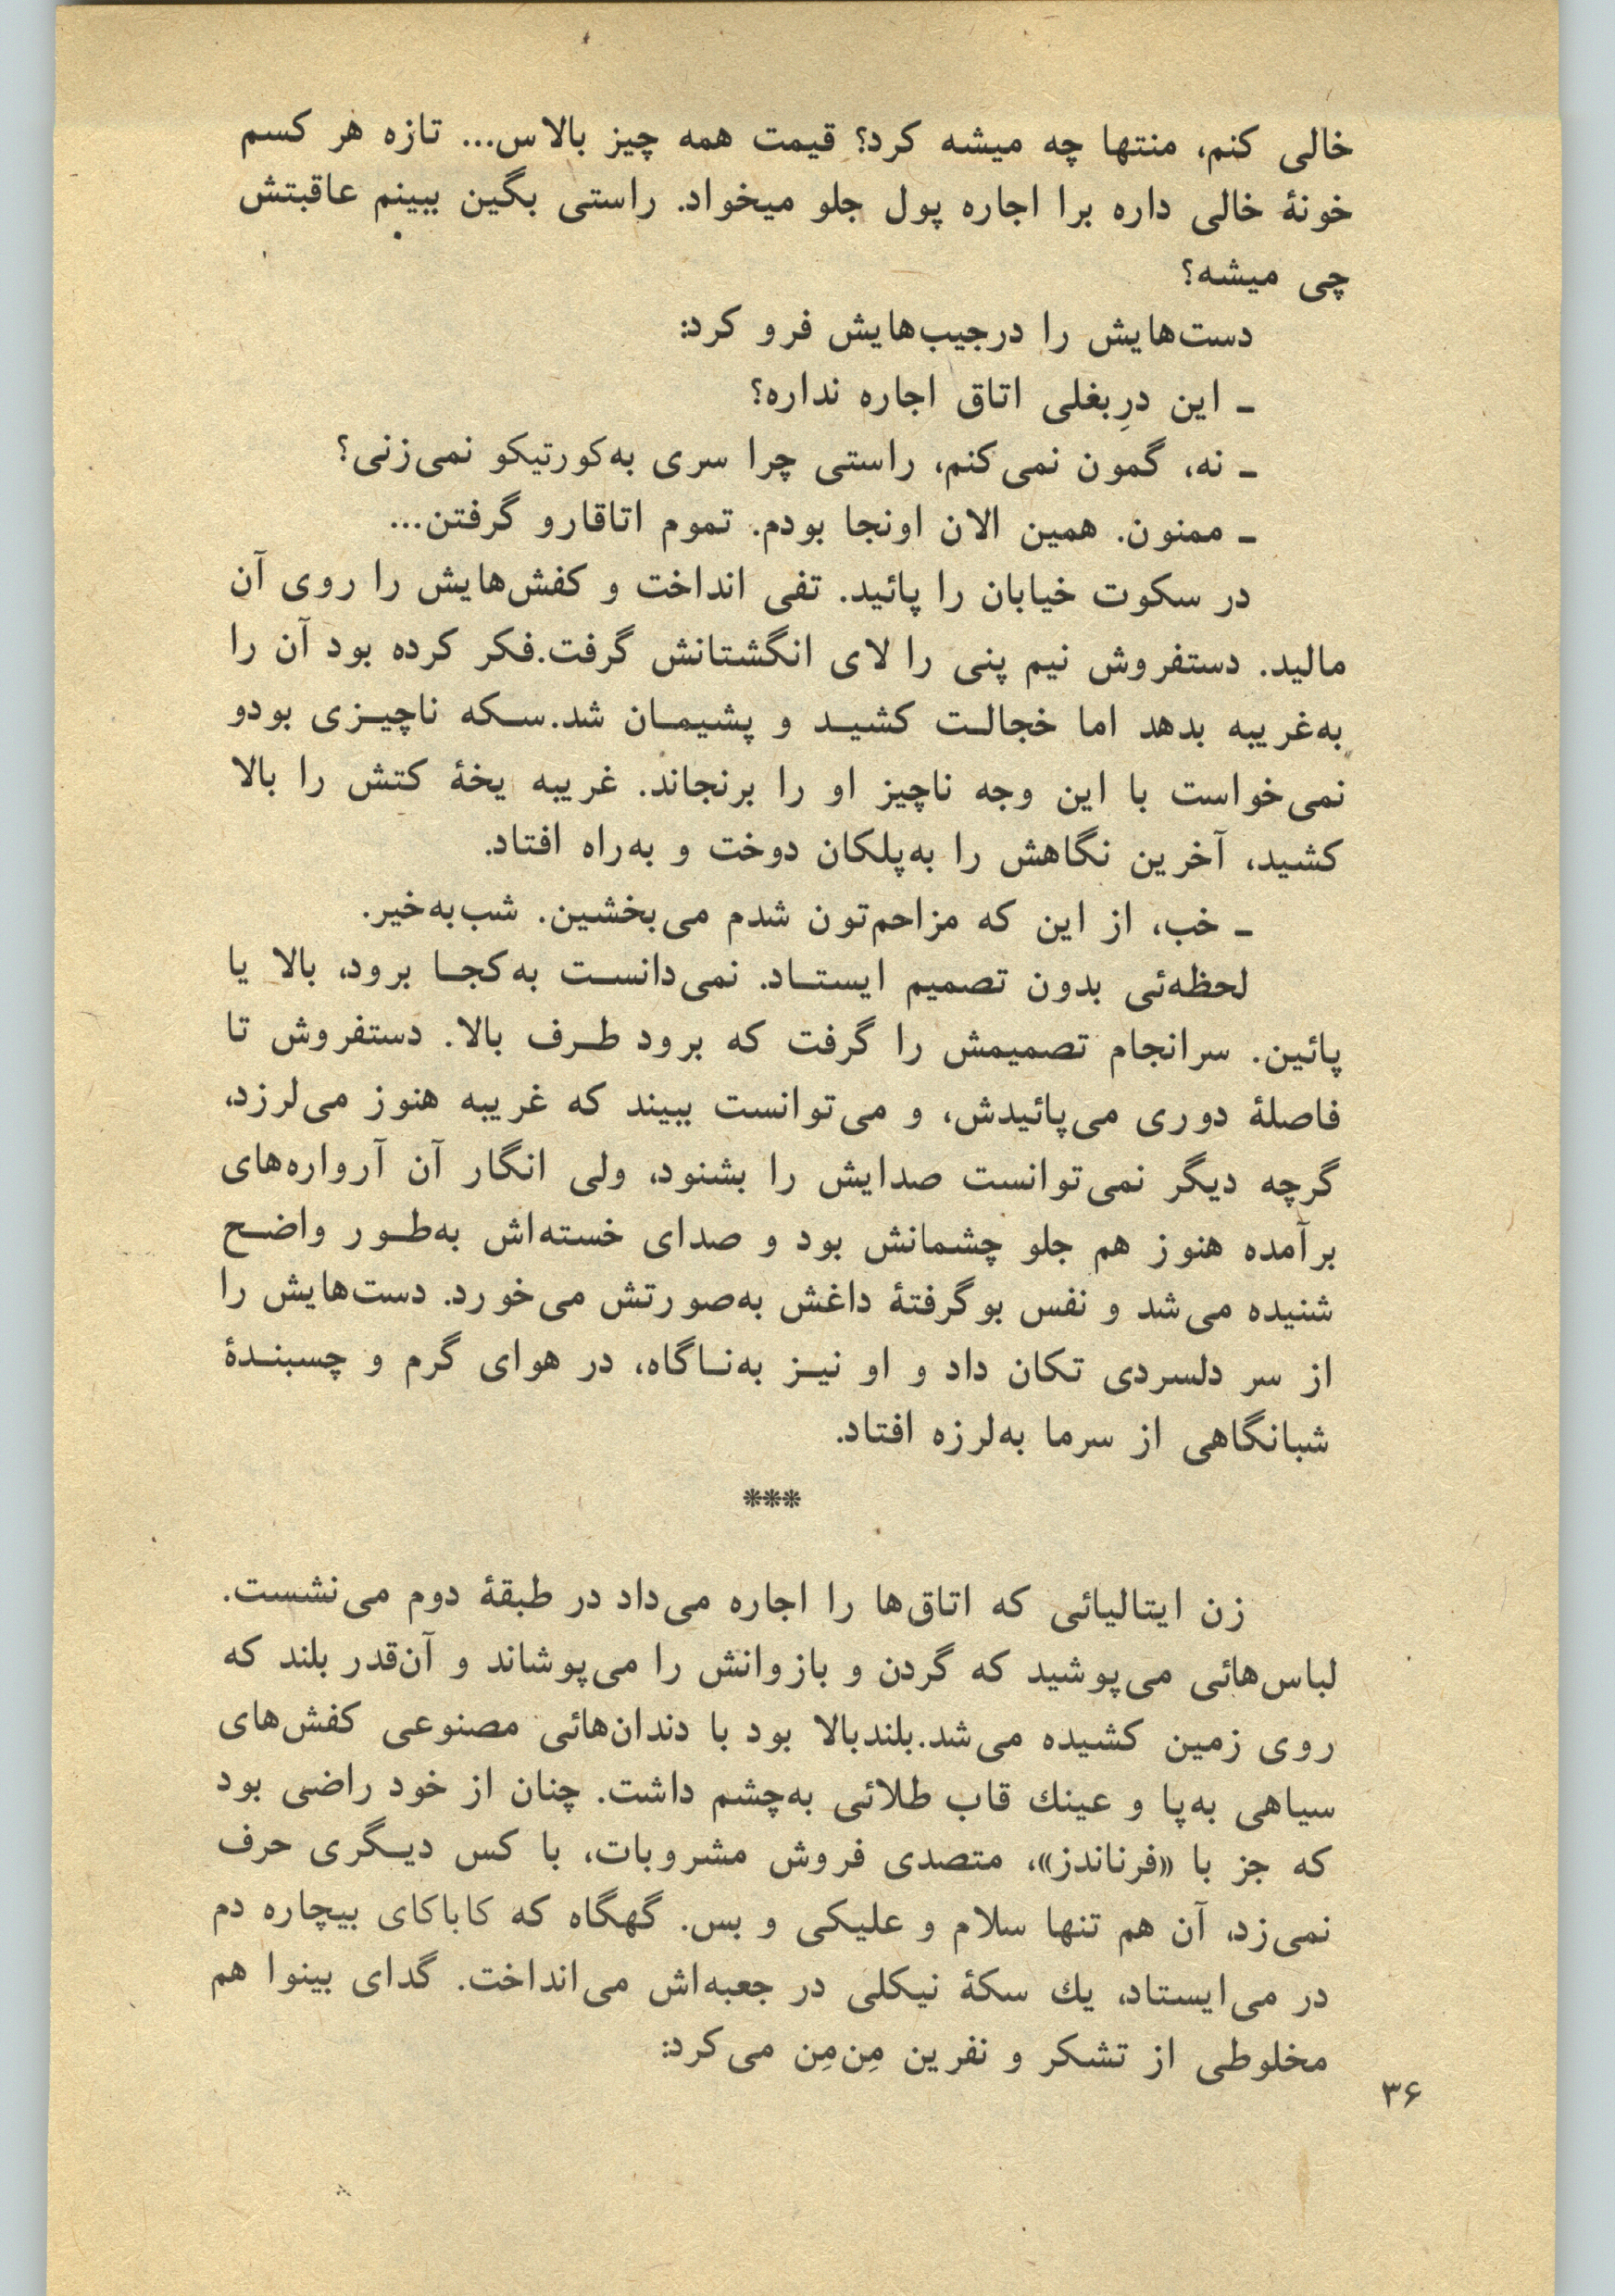 خالی کنم، منتها چه میشه کرد؟ قیمت همه چیز بالاس... تازه هر کسم
خونهٔ خالی داره برا اجاره پول جلو میخواد. راستی بگین ببینم عاقبتش
چی میشه؟
دست‌هایش را درجیب‌هایش فرو کرد:
ـ این درِبغلی اتاق اجاره نداره؟
ـ نه، گمون نمی‌کنم، راستی چرا سری به‌کورتیکو نمی‌زنی؟
ـ ممنون. همین الان اونجا بودم. تموم اتاقارو گرفتن...
در سکوت خیابان را پائید. تفی انداخت و کفش‌هایش را روی آن
مالید. دستفروش نیم پنی را لای انگشتانش گرفت.فکر کرده بود آن را
به‌غریبه بدهد اما خجالـت کشیـد و پشیمـان شد.سـکه ناچیـزی بودو
نمی‌خواست با این وجه ناچیز او را برنجاند. غریبه یخهٔ کتش را بالا
کشید، آخرین نگاهش را به‌پلکان دوخت و به‌راه افتاد.
ـ خب، از این که مزاحم‌تون شدم می‌بخشین. شب‌به‌خیر.
لحظه‌ئی بدون تصمیم ایستـاد. نمی‌دانسـت به‌کجـا برود، بالا یا
پائین. سرانجام تصمیمش را گرفت که برود طـرف بالا. دستفروش تا
فاصلهٔ دوری می‌پائیدش، و می‌توانست ببیند که غریبه هنوز می‌لرزد،
گرچه دیگر نمی‌توانست صدایش را بشنود، ولی انگار آن آرواره‌های
برآمده هنوز هم جلو چشمانش بود و صدای خسته‌اش به‌طـور واضـح
شنیده می‌شد و نفس بوگرفتهٔ داغش به‌صورتش می‌خورد. دست‌هایش را
از سر دلسردی تکان داد و او نیـز به‌نـاگاه، در هوای گرم و چسبنـدهٔ
شبانگاهی از سرما به‌لرزه افتاد.
***
زن ایتالیائی که اتاق‌ها را اجاره می‌داد در طبقهٔ دوم می‌نشست.
لباس‌هائی می‌پوشید که گردن و بازوانش را می‌پوشاند و آن‌قدر بلند که
روی زمین کشیده می‌شد.بلندبالا بود با دندان‌هائی مصنوعی کفش‌های
سیاهی به‌پا و عینك قاب طلائی به‌چشم داشت. چنان از خود راضی بود
که جز با «فرناندز»، متصدی فروش مشروبات، با کس دیـگری حرف
نمی‌زد، آن هم تنها سلام و علیکی و بس. گهگاه که کاباکای بیچاره دم
در می‌ایستاد، یك سکهٔ نیکلی در جعبه‌اش می‌انداخت. گدای بینوا هم
مخلوطی از تشکر و نفرین مِن‌مِن می‌کرد:
۳۶